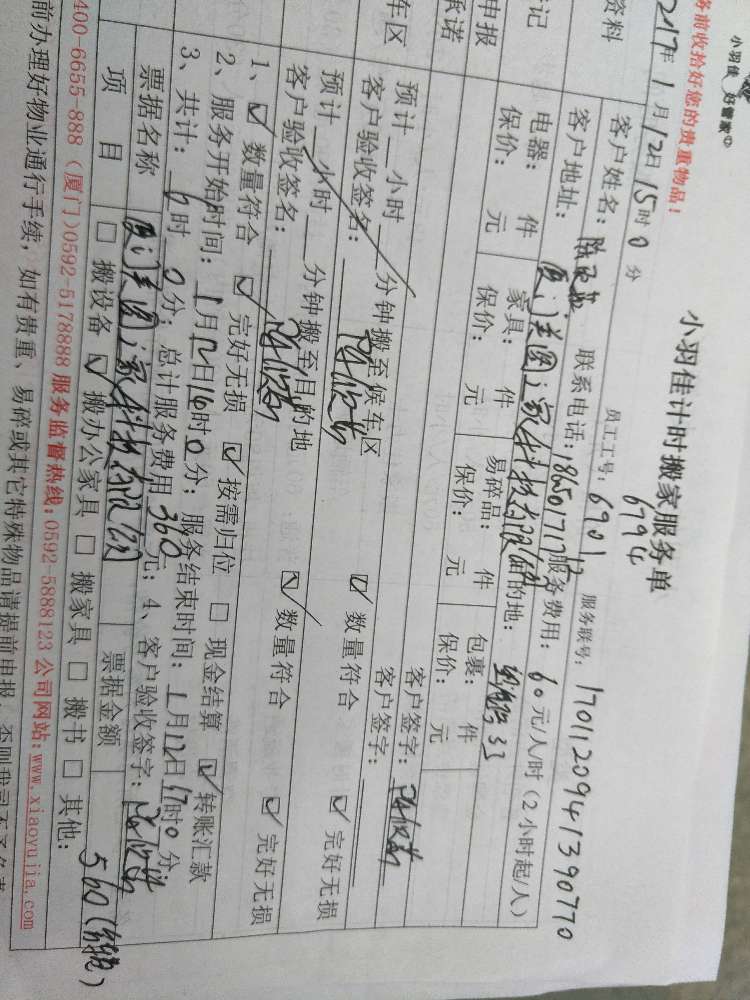 小羽佳 好管家
务前收拾好您的贵重物品！
小羽佳计时搬家服务单
6794
员工工号：6901 服务联号：1701120941390770
2017年1月12日15时0分
资料
客户姓名： 联系电话： 服务费用：60元/人/时（2小时起/人）
客户地址： 目的地：
登记
电器： 件 家具： 件 易碎品： 件 包裹： 件
保价： 元 保价： 元 保价： 元 保价： 元
申报
承诺
客户签字：
客户签字：
车区
预计 小时 分钟搬至候车区 ☑ 数量符合 ☑ 完好无损
客户验收签名：
预计 小时 分钟搬至目的地
客户验收签名：
1、☑ 数量符合 ☑ 完好无损 ☑ 按需归位 ☑ 数量符合 ☑ 完好无损
2、服务开始时间：1月12日16时0分；服务结束时间：1月12日17时0分；
□ 现金结算 ☑ 转账汇款
3、共计：6时0分；总计服务费用360元；4、客户验收签字：
票据名称 票据金额 560
项目 □ 搬设备 ☑ 搬办公家具 □ 搬家具 □ 搬书 □ 其他：
400-6655-888（厦门）0592-5178888 服务监督热线：0592-5888123 公司网站：www.xiaoyujia.com
前办理好物业通行手续，如有贵重、易碎或其它特殊物品请提前申报，否则我司不予负责